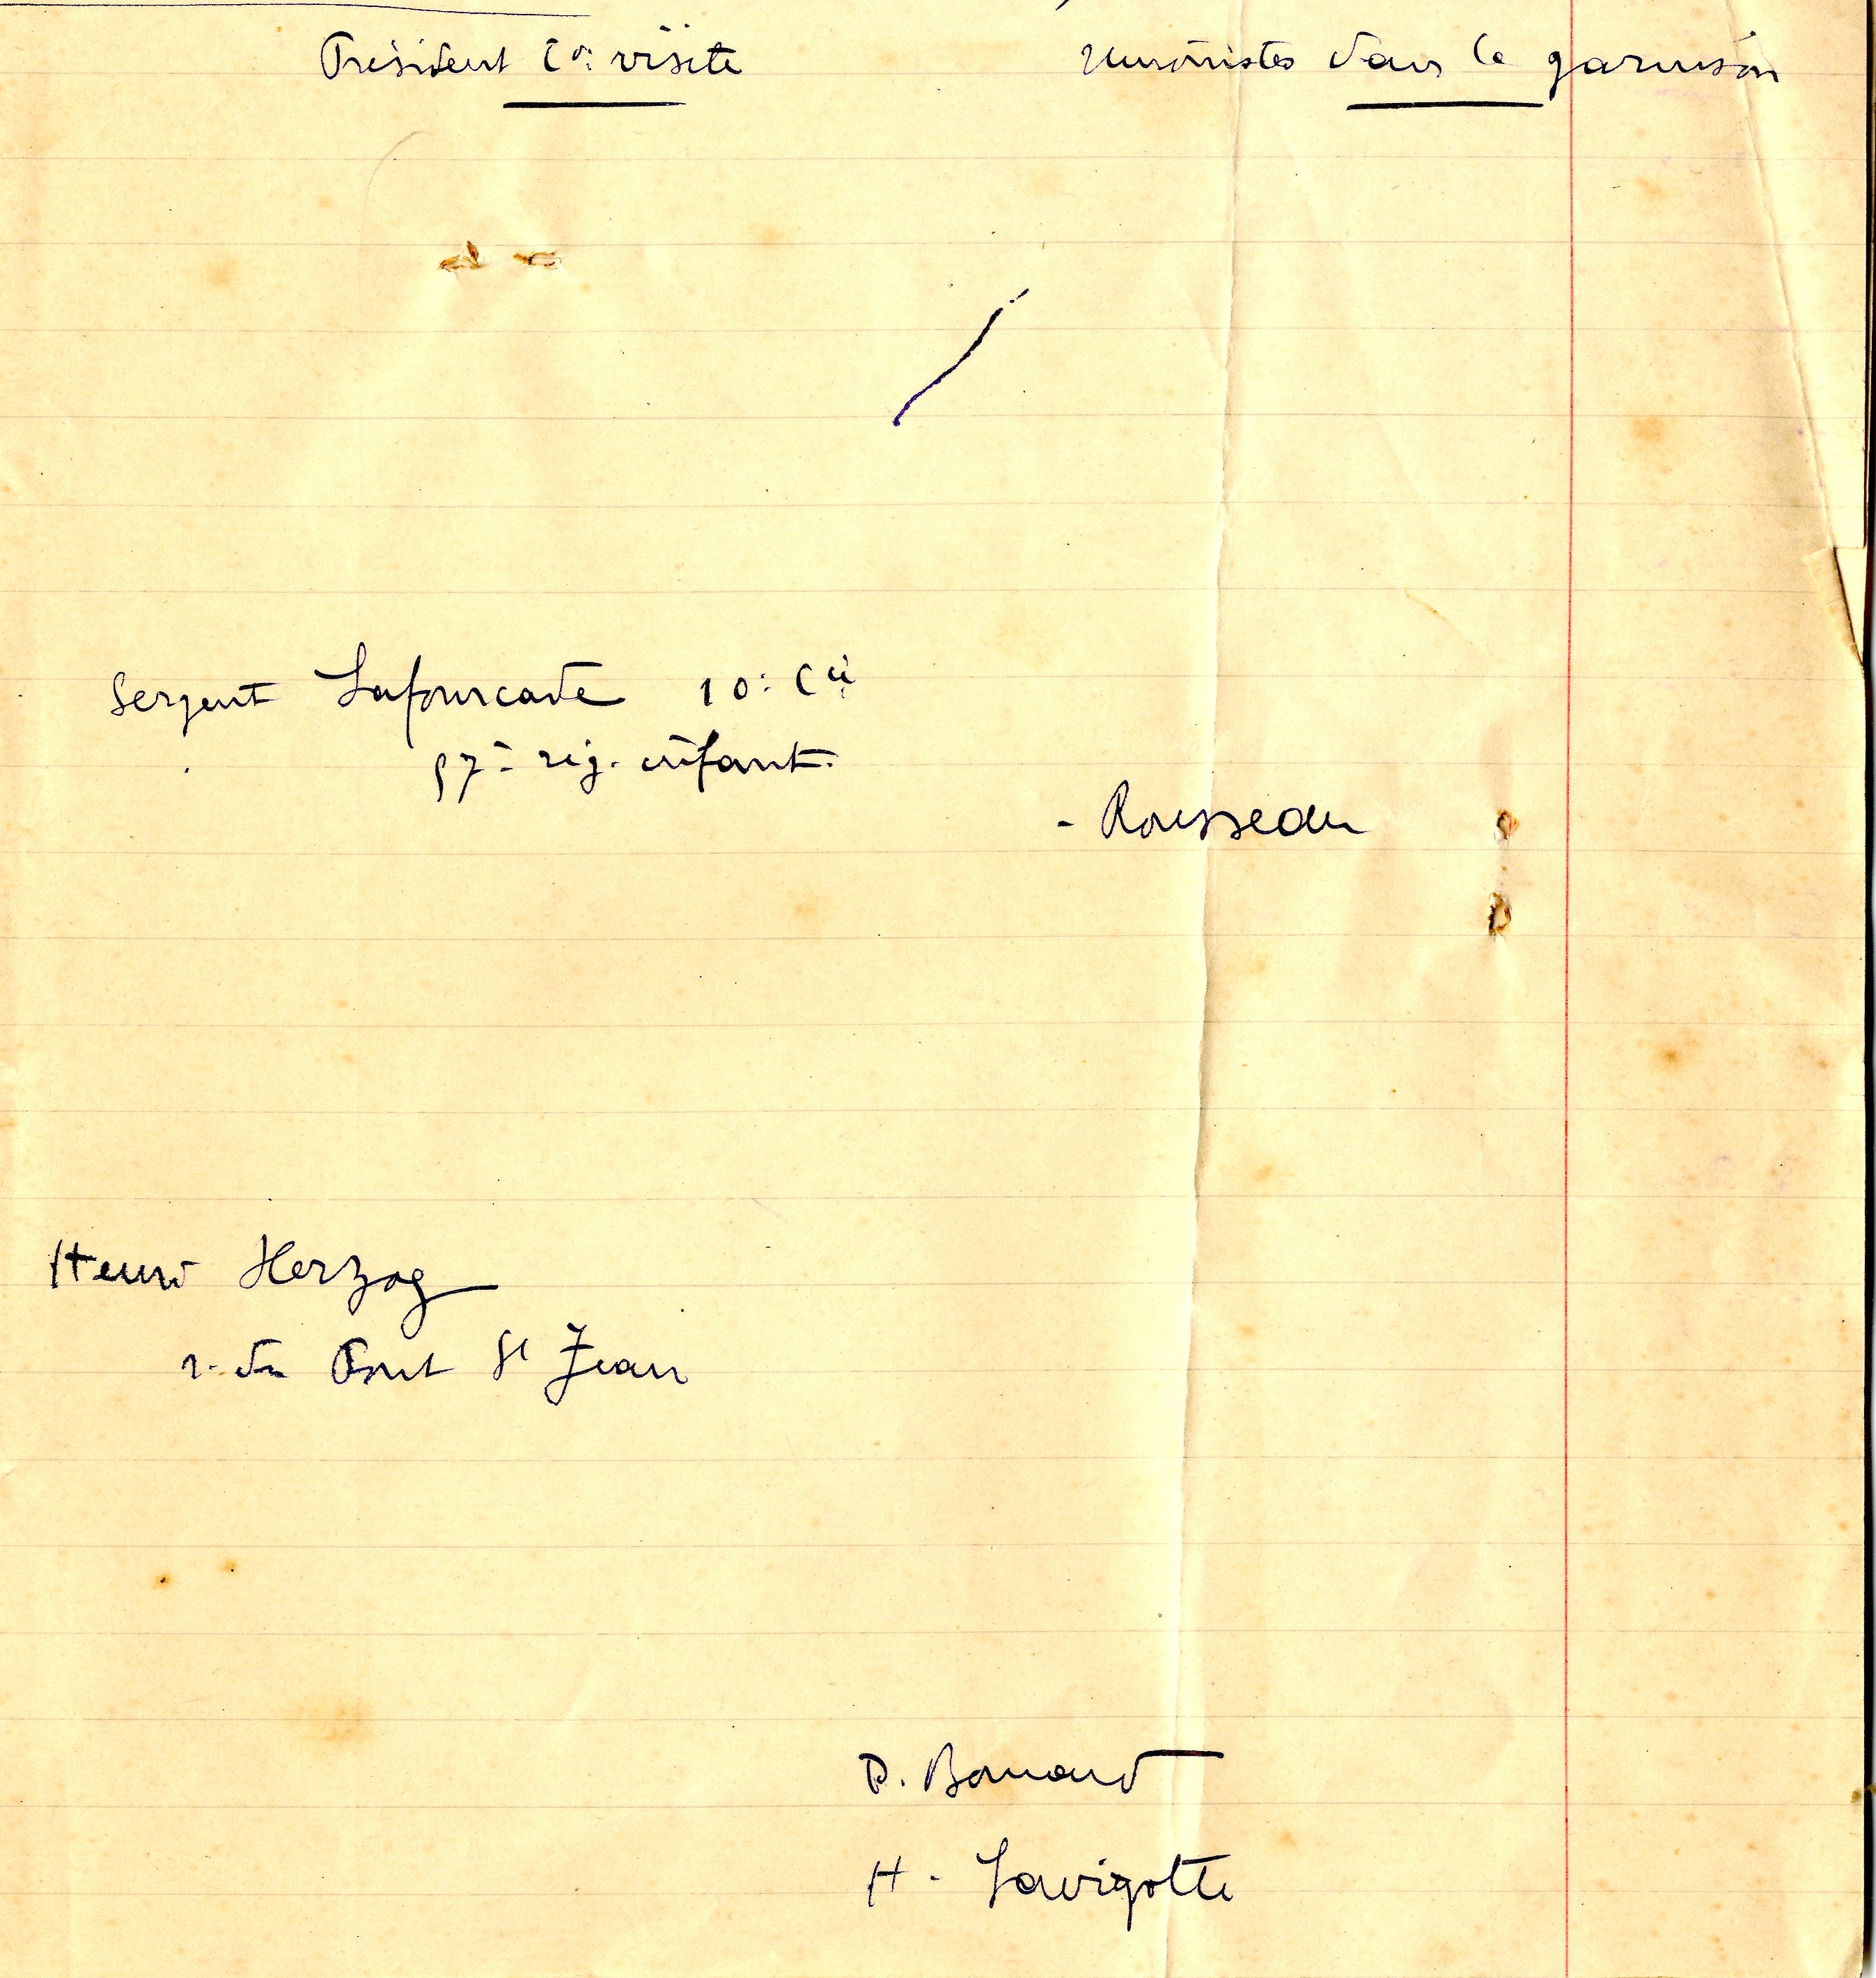 Président Con visite
Unionistes dans la garnison
Sergent Lafourcade 10e Cie
57e rég. infant.
- Rousseau
Henri Herzog
r. du Pont St Jean
D. Bonnard
H. Lavigotte